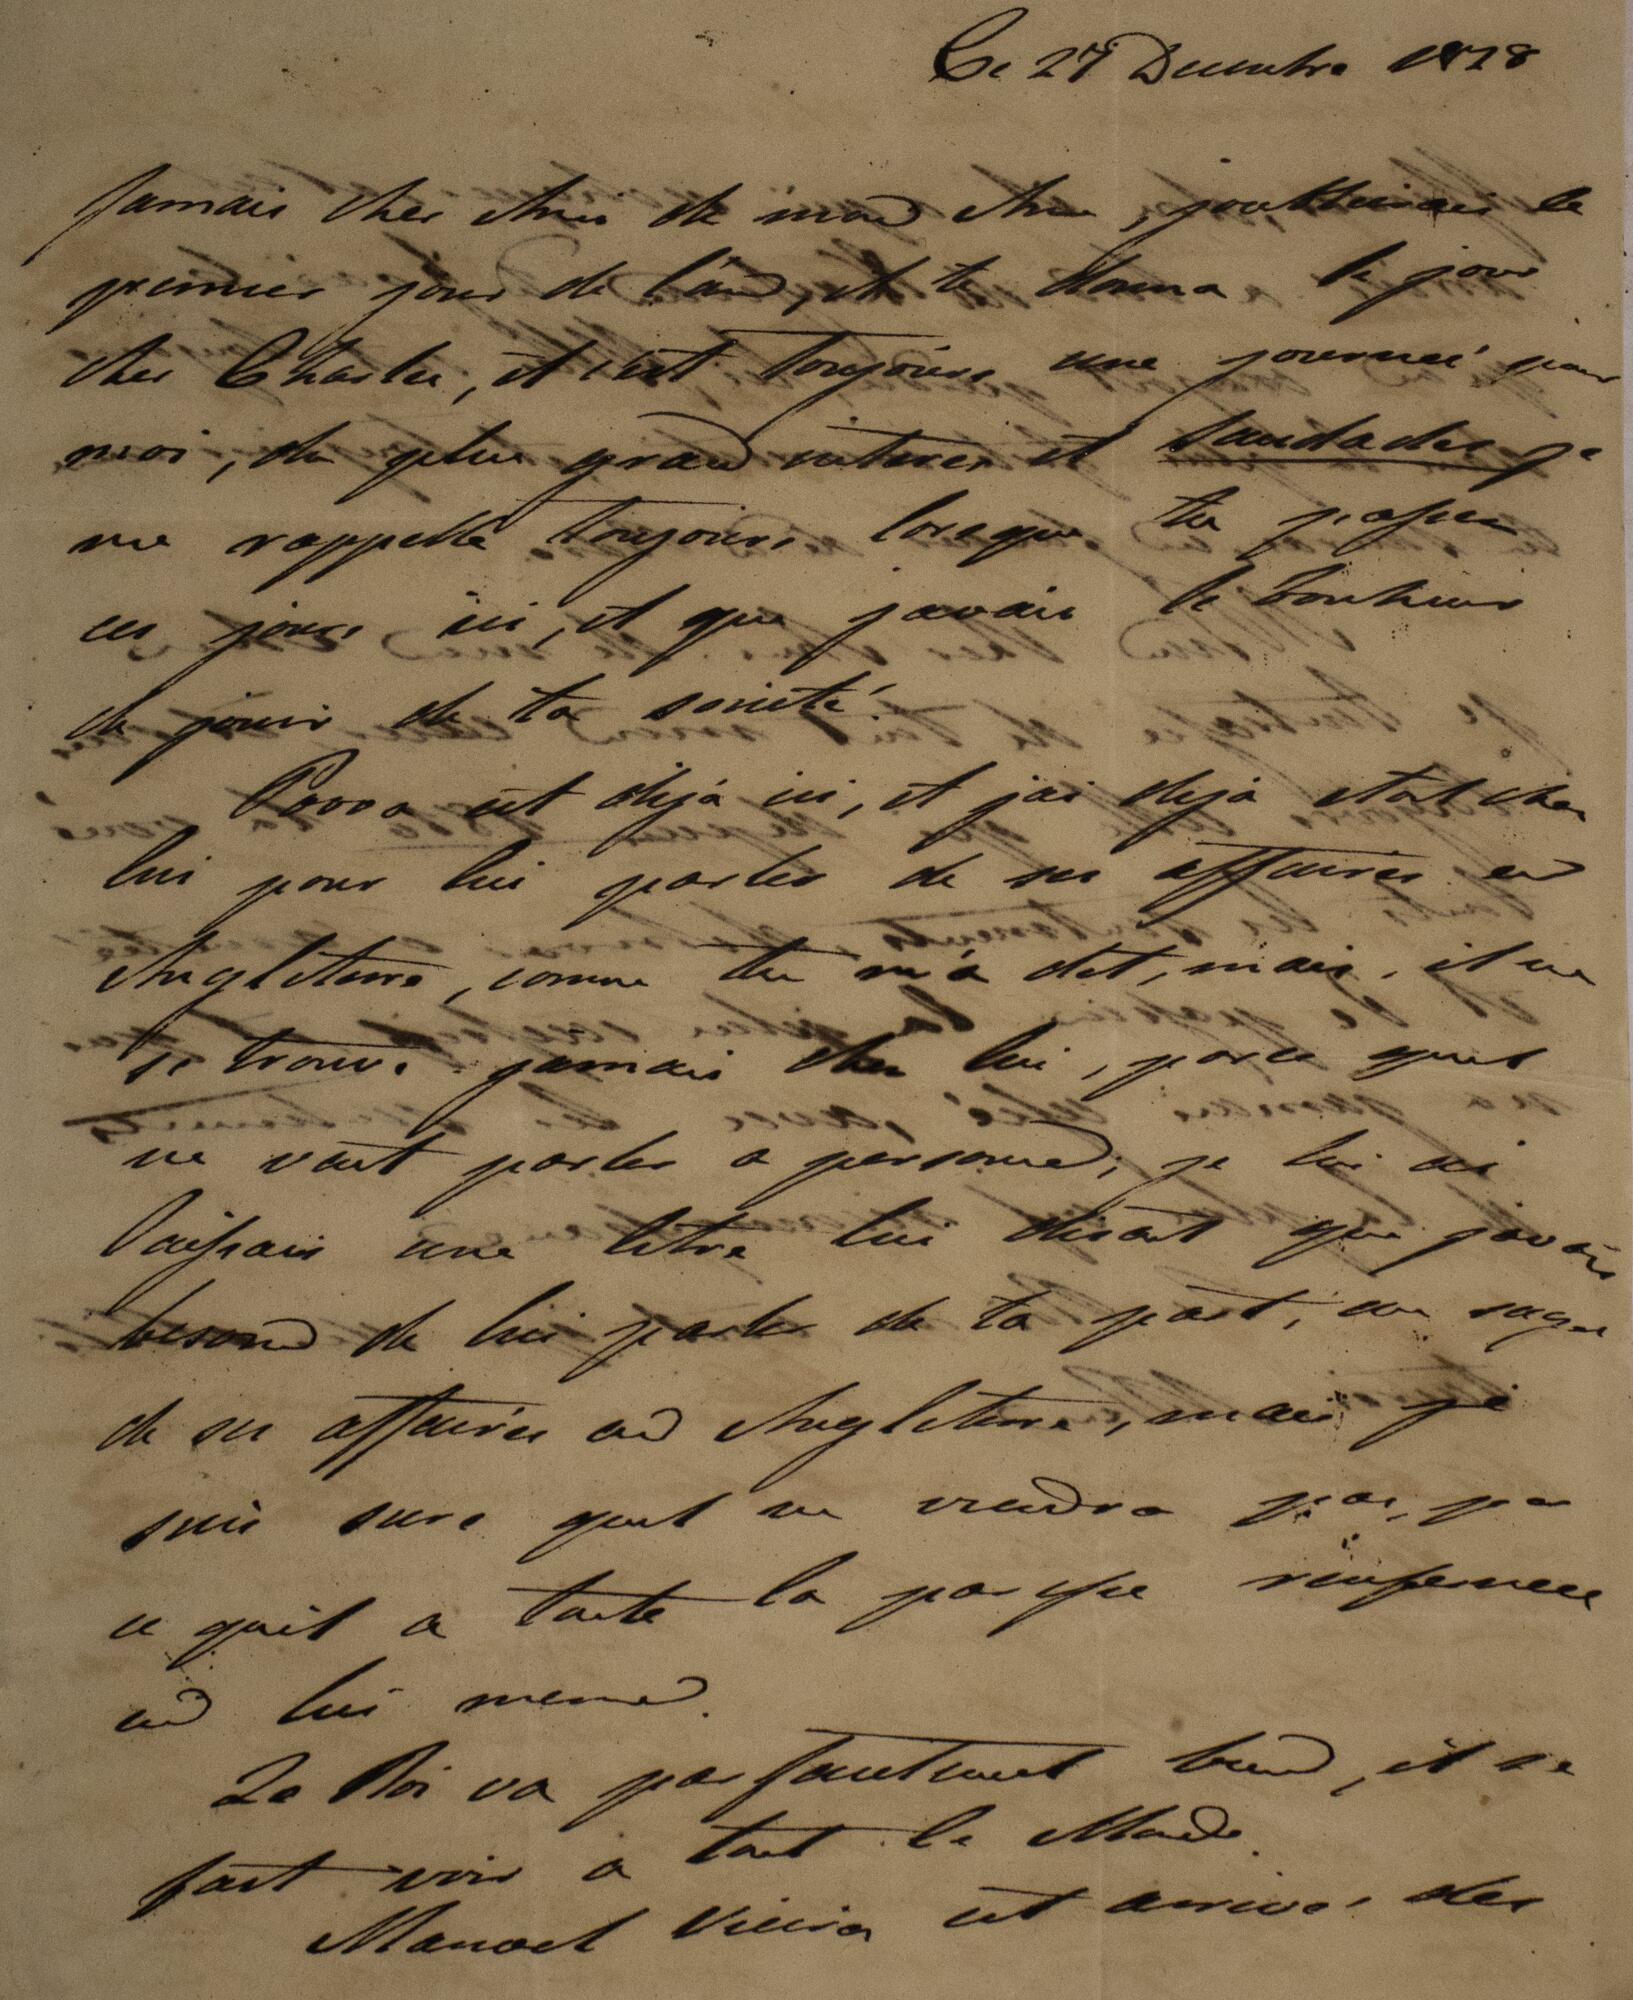 Ce 27 Decembre 1828
Jamais cher Ami de mon Ame, joublierais le
premier jour de l'an, et te donna le jour
cher Charles, et c'est toujours une journeé pour
moi, du plus grand interes et saudades qe
me rappelle toujours lorsque tu passa
ces jours ici, et que javais le bonheur
de jouir de ta societé.
Povoa est dejá ici, et jai dejá etat chez
lui pour lui parler de ses affaires en
Angleterre, comme tu m'a dit, mais, il ne
se trouve jamais chez lui, parce quil
ne veut parler a personne, je lui ai
laissais une letre lui disant que javais
besoin de lui parler de ta part, au suget
de ses affaires en Angleterre, mais je
suis sure quil ne viendra pas, par
ce quil a toute la
en lui meme.
Le Roi va parfaitement bien, et se
fait voir a tout le Monde.
Manoel Vieira est arrivé des